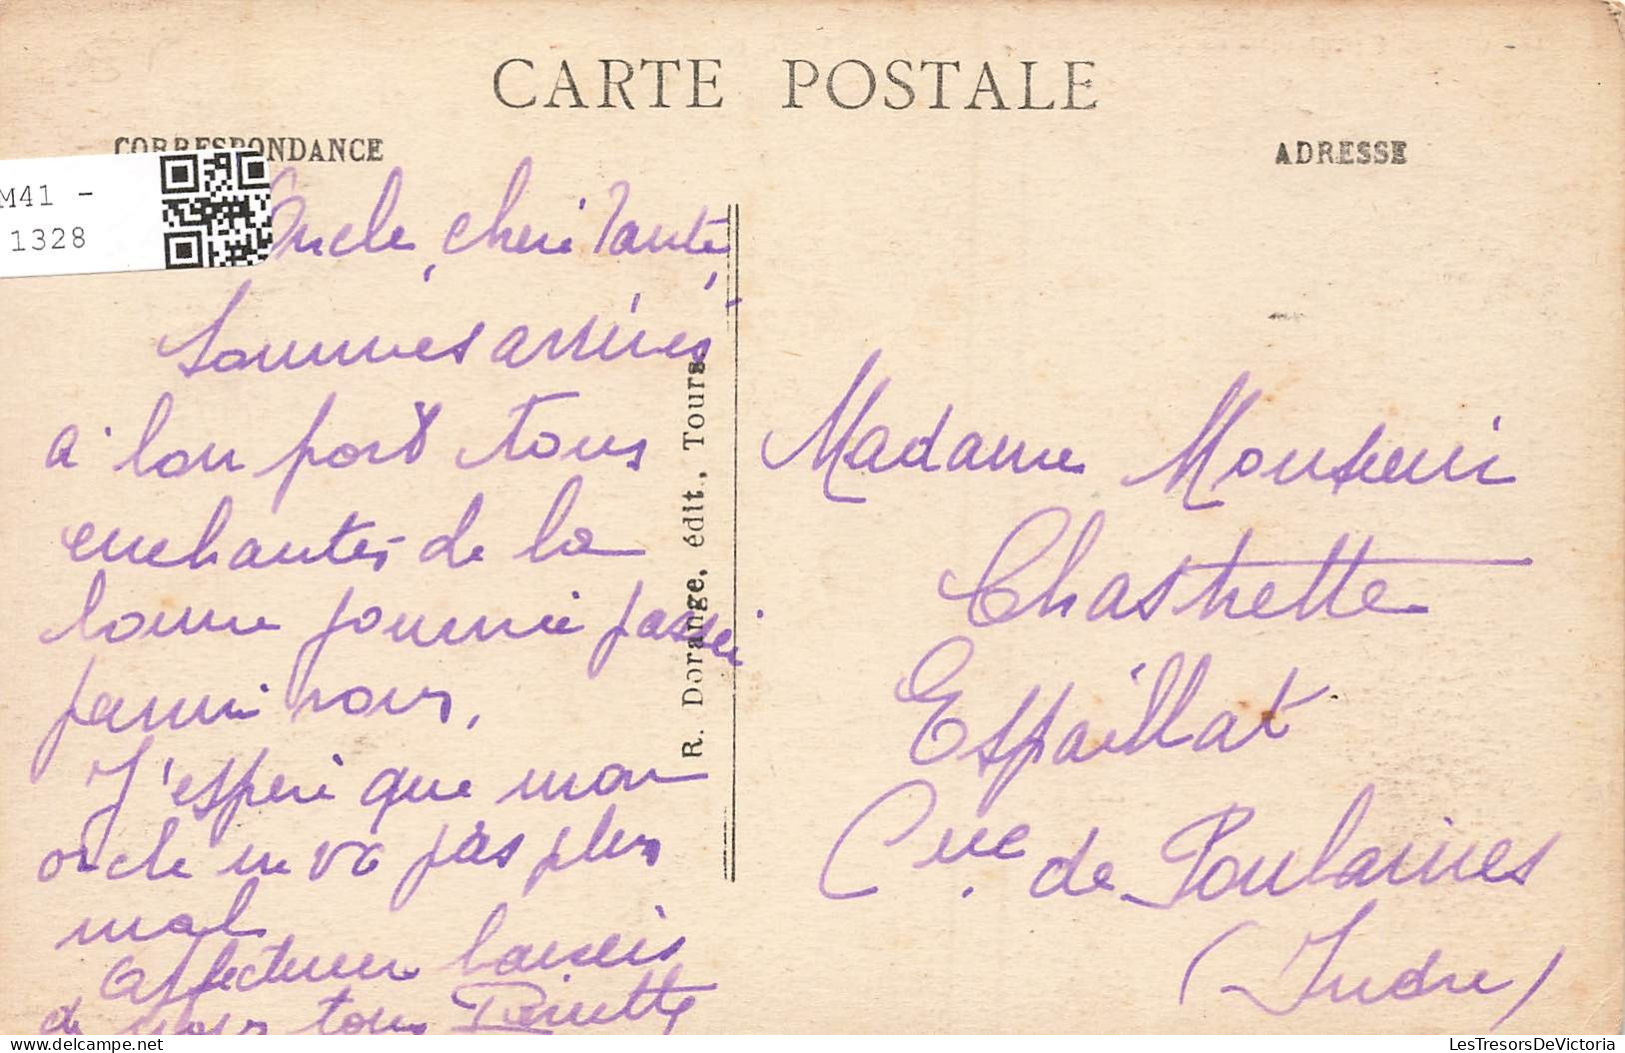 CARTE POSTALE
CORRESPONDANCE
ADRESSE
M41 -
1328
Oncle, cheri Tante,
Sommes arrivés
à bon port tous
enchantés de la
bonne journée passée
parmi vous,
J'espère que mon
oncle ne va pas plus
mal
Affectueux baisers
de nous tous
R. Dorange, édit., Tours.
Madame Monsieur
Chastrette
Espaillat
Cne de Poulaines
(Indre)
LesTresorsDeVictoria